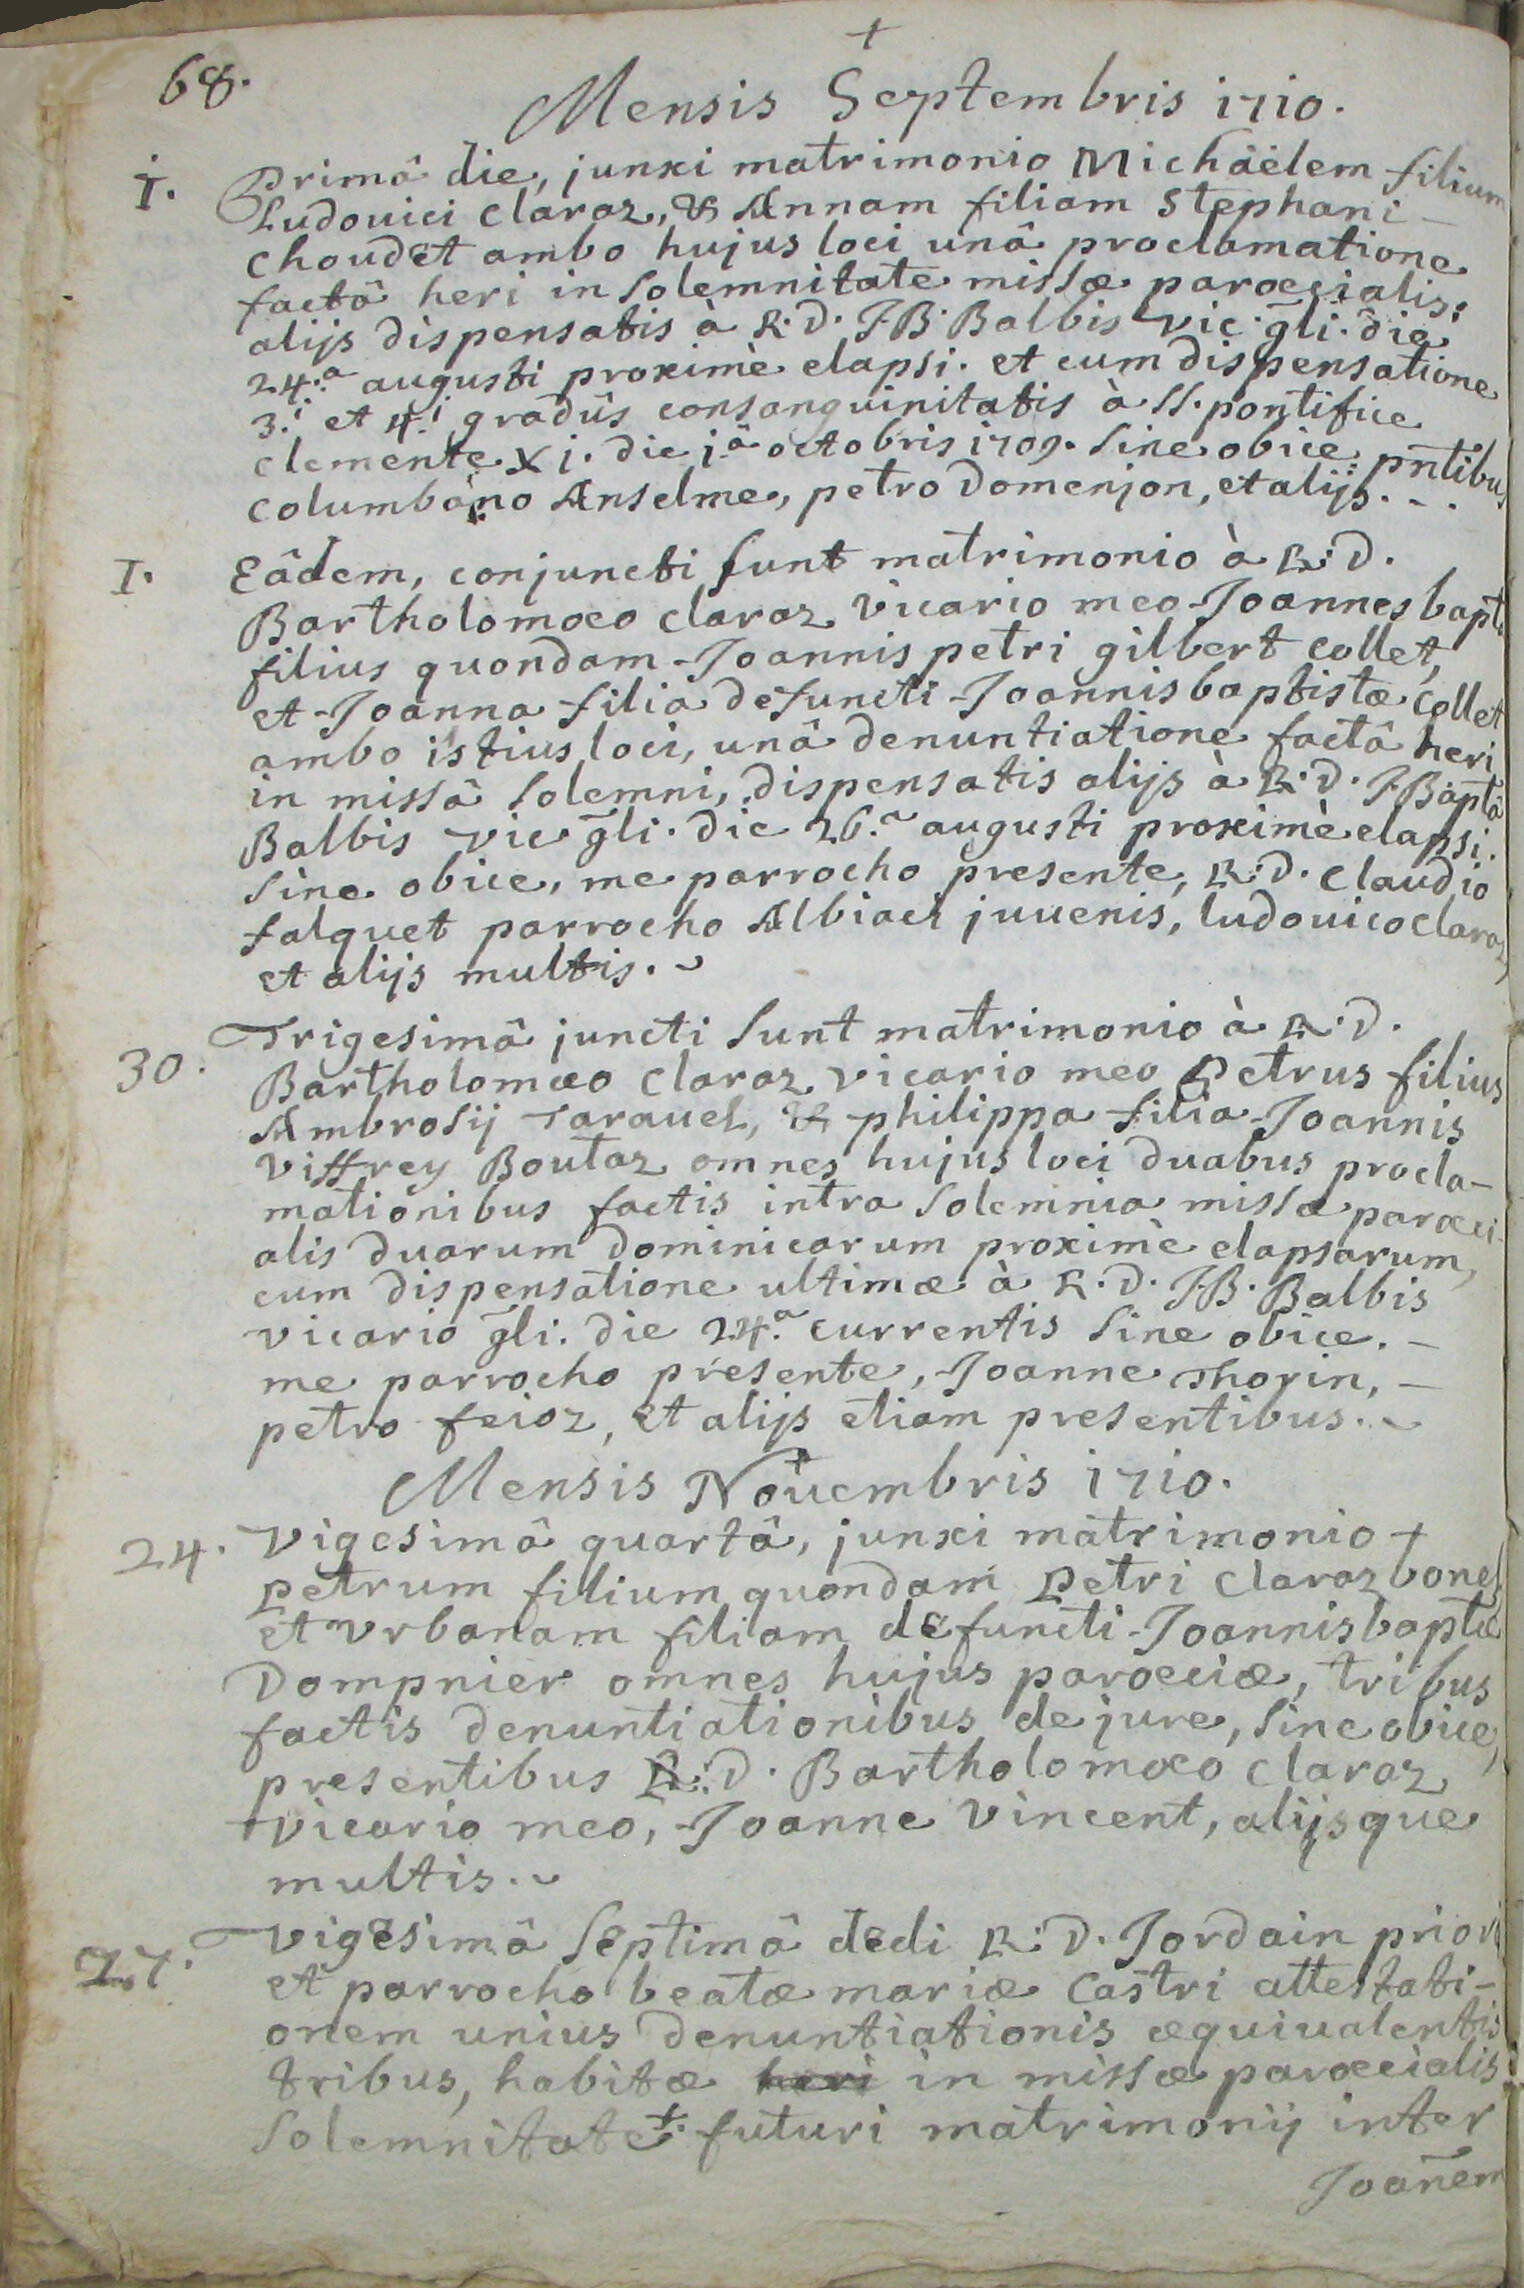 +
68.
Mensis Septembris 1710.
1. Primâ die, junxi matrimonio Michäëlem filium
Ludovici claraz, & Annam filiam Stephani -
choudet ambo hujus loci unâ proclamatione
factâ heri in solemnitate missæ paroecialis:
alijs dispensatis à R.D. J.B. Balbis vic. gli. die
24.a augusti proximè elapsi. et cum dispensatione
3.i et 4.i gradûs consanguinitatis à SS. pontifice
clemente Xj. die j.â octobris 1709. Sine obice; pntibus
columbano Anselme, petro Domenjon, et alijs. - .
1. Eâdem, conjuncti sunt matrimonio à R.D.
Bartholomoeo claraz vicario meo Joannes bapta
filius quondam Joannis petri gilbert collet,
et Joanna filia defuncti Joannis baptistæ collet
ambo istius loci, unâ denuntiatione factâ heri
in missâ solemni, dispensatis alijs à R.D. J.Bapta
Balbis vic gli. die 26.a augusti proximè elapsi.
Sine obice, me parrocho presente, R.D. claudio
falquet parrocho Albiaci juvenis, ludovico claraz,
et alijs multis.
30. Trigesimâ juncti sunt matrimonio à R.D.
Bartholomæo claraz vicario meo Petrus filius
Ambrosij Taravel, & philippa filia Joannis
Viffrey Boutaz omnes hujus loci duabus procla-
mationibus factis intra solemnia missæ paroeci-
alis duarum dominicarum proximè elapsarum,
cum dispensatione ultimæ à R.D. J.B. Balbis
vicario gli. die 24.a currentis Sine obice. -
me parrocho presente, Joanne Thorin, -
petro feioz, et alijs etiam presentibus.
Mensis Novembris 1710.
24. Vigesimâ quartâ, junxi matrimonio +
petrum filium quondam Petri claraz bonel
et Vrbanam filiam defuncti Joannis baptæ
Dompnier omnes hujus paroeciæ, tribus
factis denuntiationibus de jure, sine obice,
presentibus R.D. Bartholomoeo claraz
vicario meo, Joanne Vincent, alijsque
multis.
27. Vigesimâ septimâ dedi R.D. Jordain priori
et parrocho beatæ mariæ castri attestati-
onem unius denuntiationis æquivalentis
tribus, habitæ heri in missæ paroecialis
solemnitate +. futuri matrimonij inter
Joañem